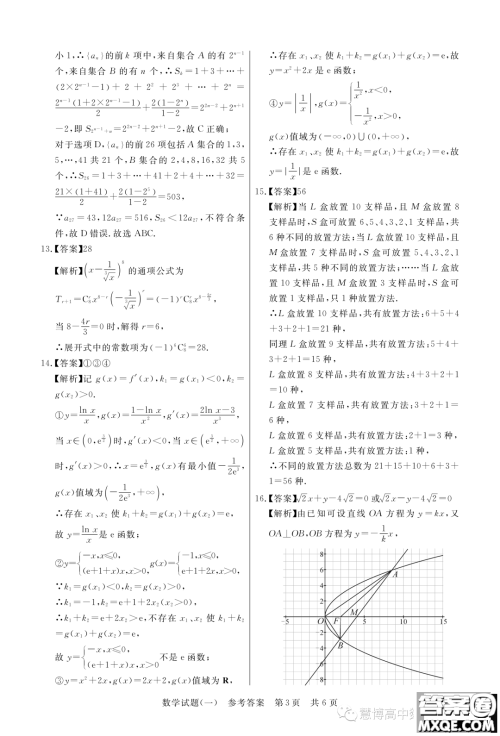 小 1,∴{aₙ}的前 k 项中,来自集合 A 的有 2ⁿ⁻¹
个,来自集合 B 的有 n 个,∴Sₖ=1+3+…+
(2×2ⁿ⁻¹-1)+2+2²+2³+…+2ⁿ=
2ⁿ⁻¹(1+2×2ⁿ⁻¹-1)/2+2(1-2ⁿ)/(1-2)=2²ⁿ⁻²+2ⁿ⁺¹
-2,即 =2²ⁿ⁻²+2ⁿ⁺¹-2,故 C 正确;
对于选项 D,{aₙ}的前 26 项包括 A 集合的 1,3,
5,…,41 共 21 个,B 集合的 2,4,8,16,32 共 5
个,∴S₂₆=1+3+…+41+2+4+…+32=
21×(1+41)/2+2(1-2⁵)/(1-2)=503,
∵a₂₇=43,12a₂₇=516,S₂₆<12a₂₇,不符合条
件,故 D 错误.故选 ABC.
13.【答案】28
【解析】 的通项公式为
当 8-4r/3=0 时,解得 r=6,
∴展开式中的常数项为(-1)⁶C₈⁶=28.
14.【答案】①③④
【解析】记 g(x)=f′(x),k₁=g(x₁)<0,k₂=
g(x₂)>0.
①y=ln x/x,g(x)=(1-ln x)/x²,g′(x)=(2ln x-3)/x³,
当 x∈(0,e^(3/2))时,g′(x)<0,当 x∈(e^(3/2),+∞)
时,g′(x)>0,∴x=e^(3/2),g(x)有最小值-1/(2e³),
g(x)值域为(-1/(2e³),+∞),
∴存在 x₁、x₂ 使 k₁+k₂=g(x₁)+g(x₂)=e,
故 y=ln x/x 是 e 函数;
②y={-x,x≤0, (e+1+x)x,x>0, g(x)={-1,x≤0, e+1+2x,x>0,
∵k₁=g(x₁)<0,k₂=g(x₂)>0,
∴k₁=-1,k₂=e+1+2x₂(x₂>0),
∴k₁+k₂=e+2x₂>e,不存在 x₁、x₂ 使 k₁+k₂
=g(x₁)+g(x₂)=e,
故 y={-x,x≤0, (e+1+x)x,x>0 不是 e 函数;
③y=x²+2x,g(x)=2x+2,g(x)值域为 R,
∴存在 x₁、x₂ 使 k₁+k₂=g(x₁)+g(x₂)=e,故
y=x²+2x 是 e 函数;
④y=|1/x|,g(x)={1/x²,x<0, -1/x²,x>0,
g(x)值域为(-∞,0)∪(0,+∞),
∴存在 x₁、x₂ 使 k₁+k₂=g(x₁)+g(x₂)=e,故
y=|1/x|是 e 函数.
15.【答案】56
【解析】当 L 盒放置 10 支样品,且 M 盒放置 8
支样品时,S 盒可放置 6、5、4、3、2、1 支样品,共
6 种不同的放置方法;当 L 盒放置 10 支样品,且
M 盒放置 7 支样品时,S 盒可放置 5、4、3、2、1
支样品,共 5 种不同的放置方法;……当 L 盒放
置 10 支样品,且 M 盒放置 3 支样品时,S 盒可
放置 1 支样品,只 1 种放置方法.
∴L 盒放置 10 支样品,共有放置方法:6+5+4
+3+2+1=21 种,
同理 L 盒放置 9 支样品,共有放置方法:5+4+
3+2+1=15 种,
L 盒放置 8 支样品,共有放置方法:4+3+2+1
=10 种,
L 盒放置 7 支样品,共有放置方法:3+2+1=
6 种,
L 盒放置 6 支样品,共有放置方法:2+1=3 种,
L 盒放置 5 支样品,共有放置方法:1 种,
∴不同的放置方法总数为 21+15+10+6+3+
1=56 种.
16.【答案】√2x+y-4√2=0 或√2x-y-4√2=0
【解析】由已知可设直线 OA 方程为 y=kx,又
OA⊥OB,OB 方程为 y=-1/k x,
8
6
4
2
A
-5 O F M 5 10 15
-2
B
-4
-6
8
数学试题(一) 参考答案 第 3 页 共 6 页
慧博高中数
答案圈
MXQE.COM